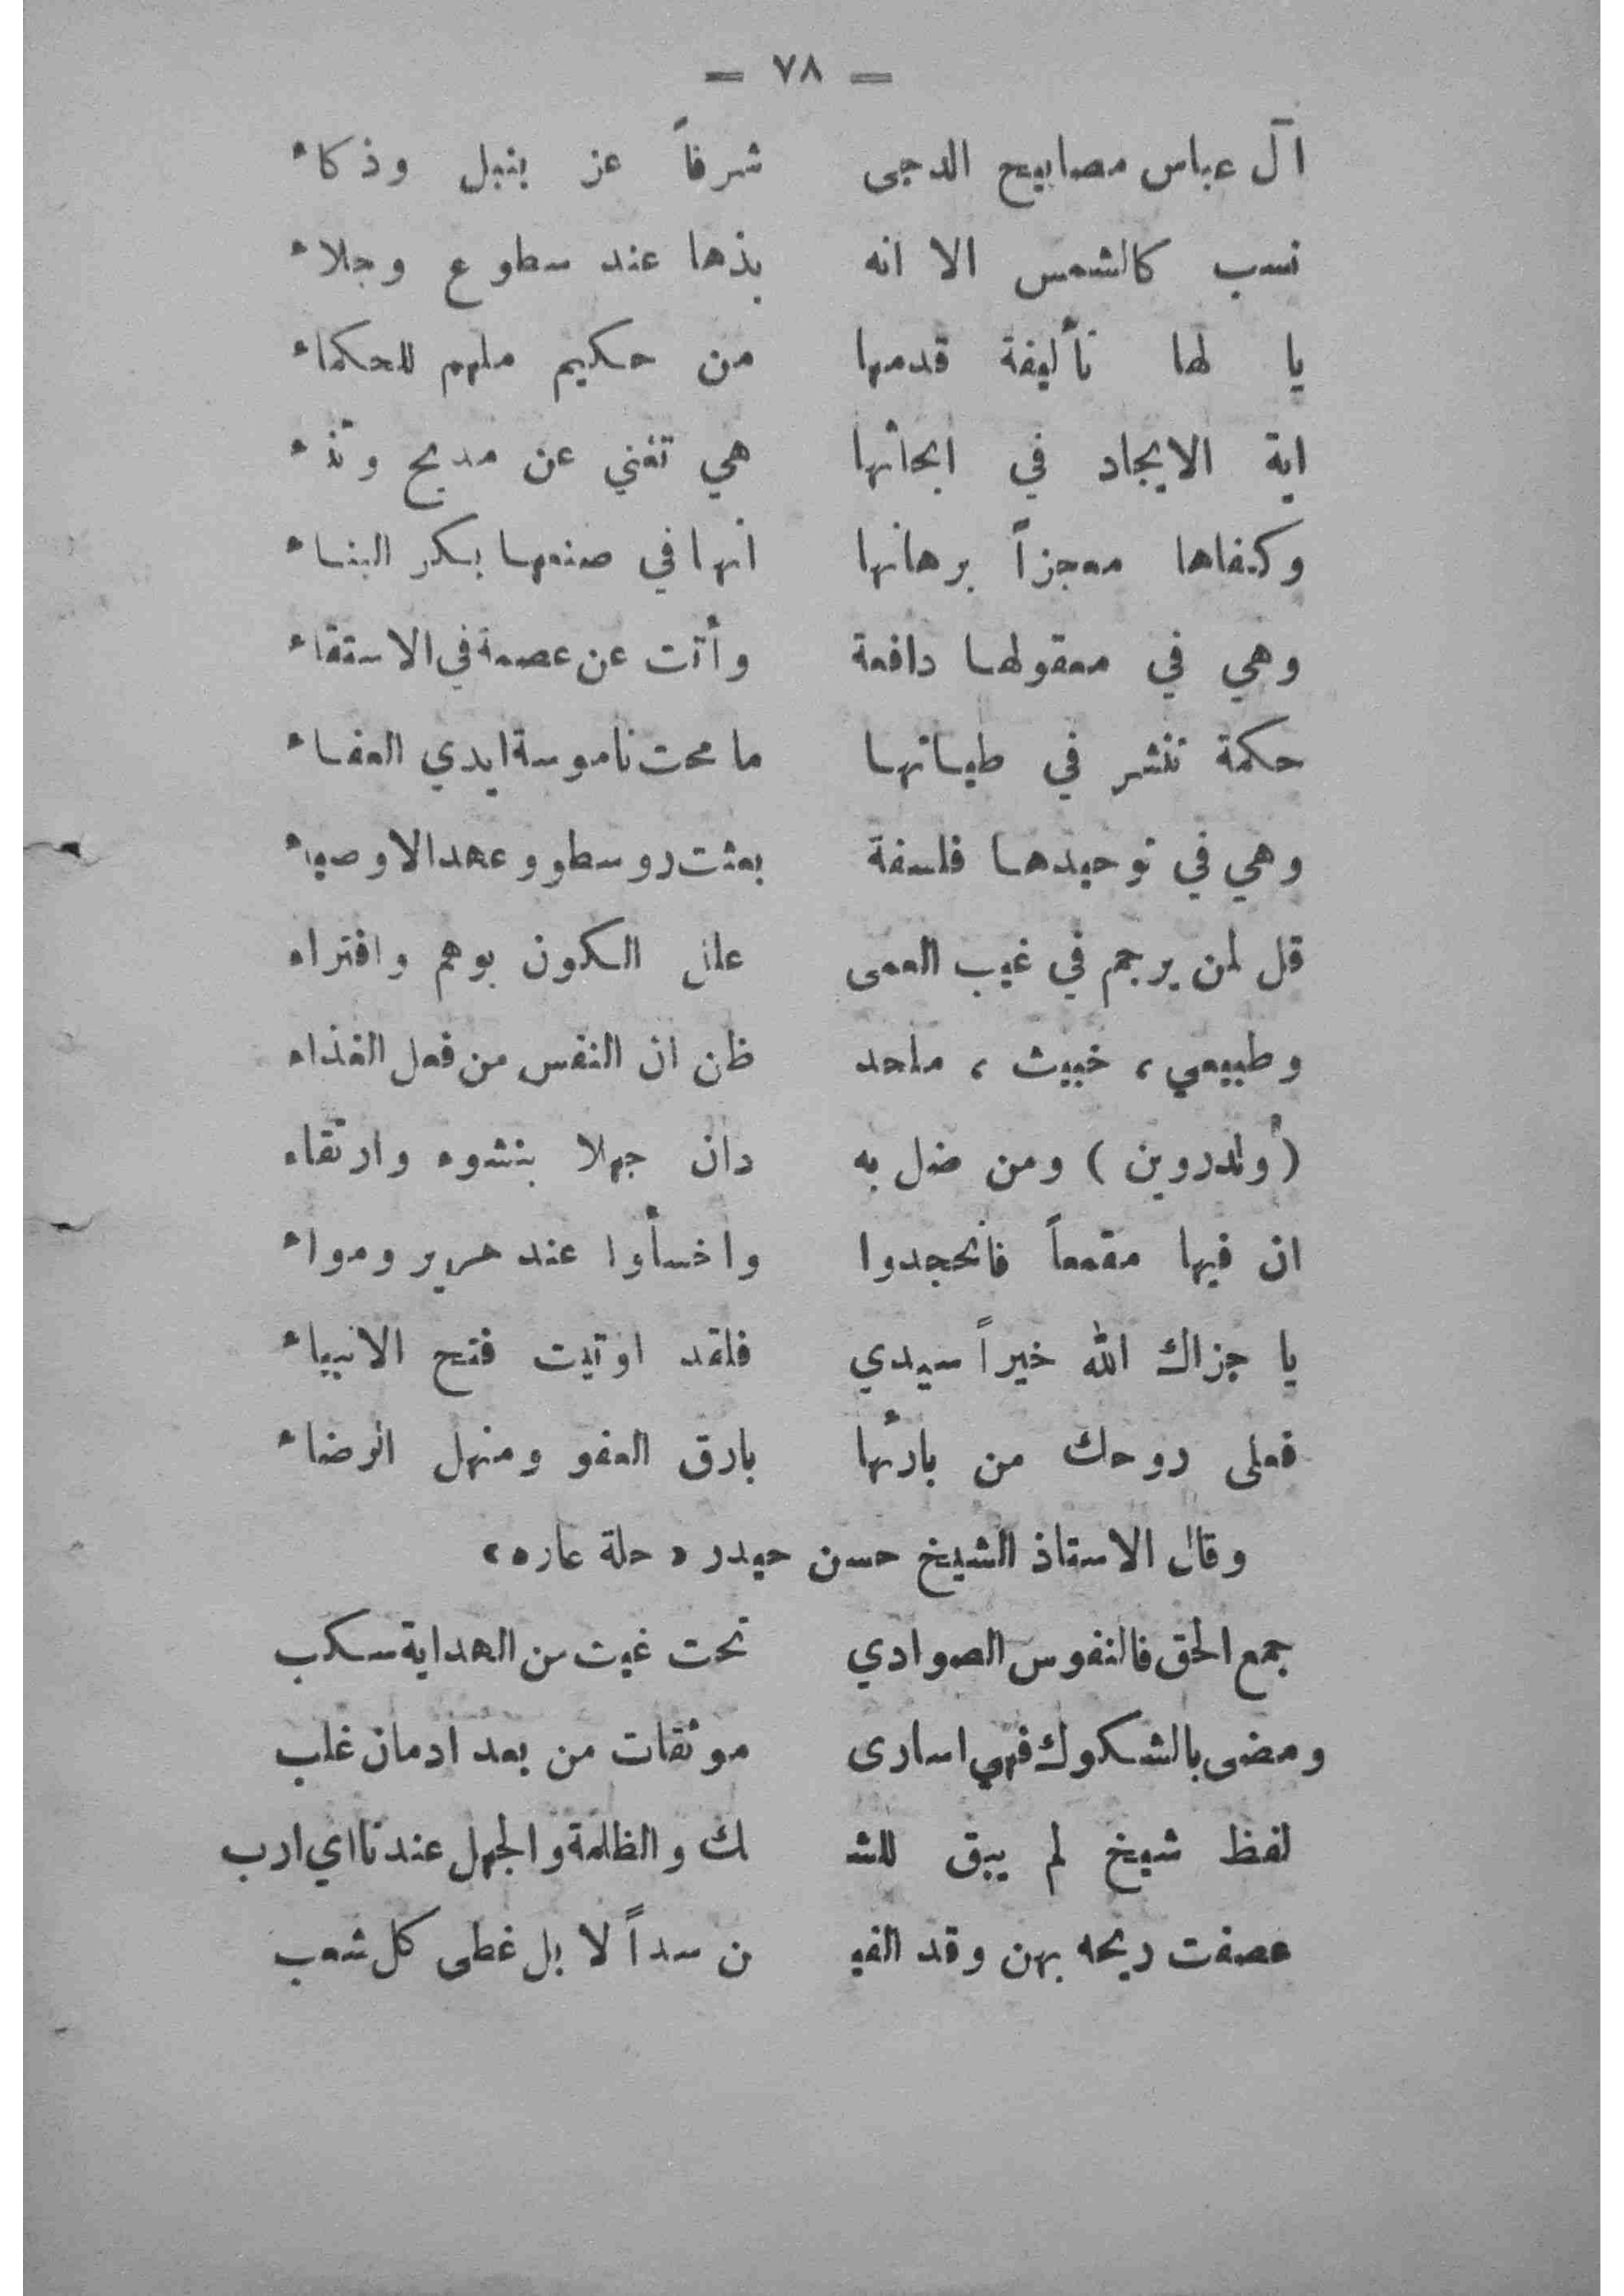 — ٧٨ —
آل عباس مصابيح الدجى شرفاً عز بنبل وذكاء
نسب كالشمس الا انه بذها عند سطوع وجلاء
يا لها تأليفة قدمها من حكيم ملهم للحكماء
اية الايجاد في ابحاثها هي تغني عن مديح وثناء
وكفاها معجزاً برهانها انها في صنعها بكر البناء
وهي في معقولها دافعة وأتت عن عصمة في الاستقاء
حكمة تنشر في طياتها ما محت ناموسة ايدي العفاء
وهي في توحيدها فلسفة بعثت روسطو وعهد الاوصياء
قل لمن يرجم في غيب العمى علل الكون بوهم وافتراء
وطبيعي ، خبيث ، ملحد ظن ان النفس من فعل الغذاء
(أولدروين) ومن ضل به دان جهلا بنشوء وارتقاء
ان فيها مقمعاً فانججدوا واخسأوا عند هرير ومواء
يا جزاك الله خيراً سيدي فلقد اوتيت فتح الانبياء
فعلى روحك من بارئها بارق العفو ومنهل الرضاء
وقال الاستاذ الشيخ حسن حيدر « حلة عاره »
جمع الحق فالنفوس الصوادي تحت غيث من الهداية سكب
ومضى بالشكوك فهي اسارى موثقات من بعد ادمان غلب
لفظ شيخ لم يبق للشـ ك والظلمة والجهل عندنا اي ارب
عصفت ريحه بهن وقد الفيـ ن سداً لا بل غطى كل شعب